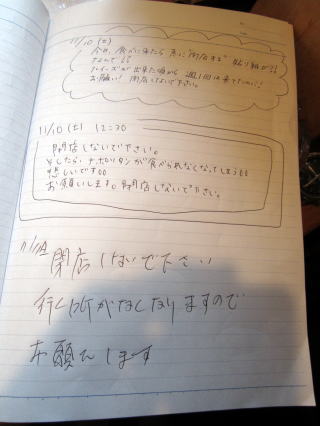 11/10 (土)
今日、食べに来たら 急に"閉店する" 貼り紙が!!
なんで!?
お願い! 閉店しないで下さい。
11/10 (土) 12:30
閉店しないで下さい。
そしたら ナポリタンが食べられなくなってしまう
悲しいです
お願いします。閉店しないで下さい。
閉店しないで下さい
行く所がなくなりますので
お願いします